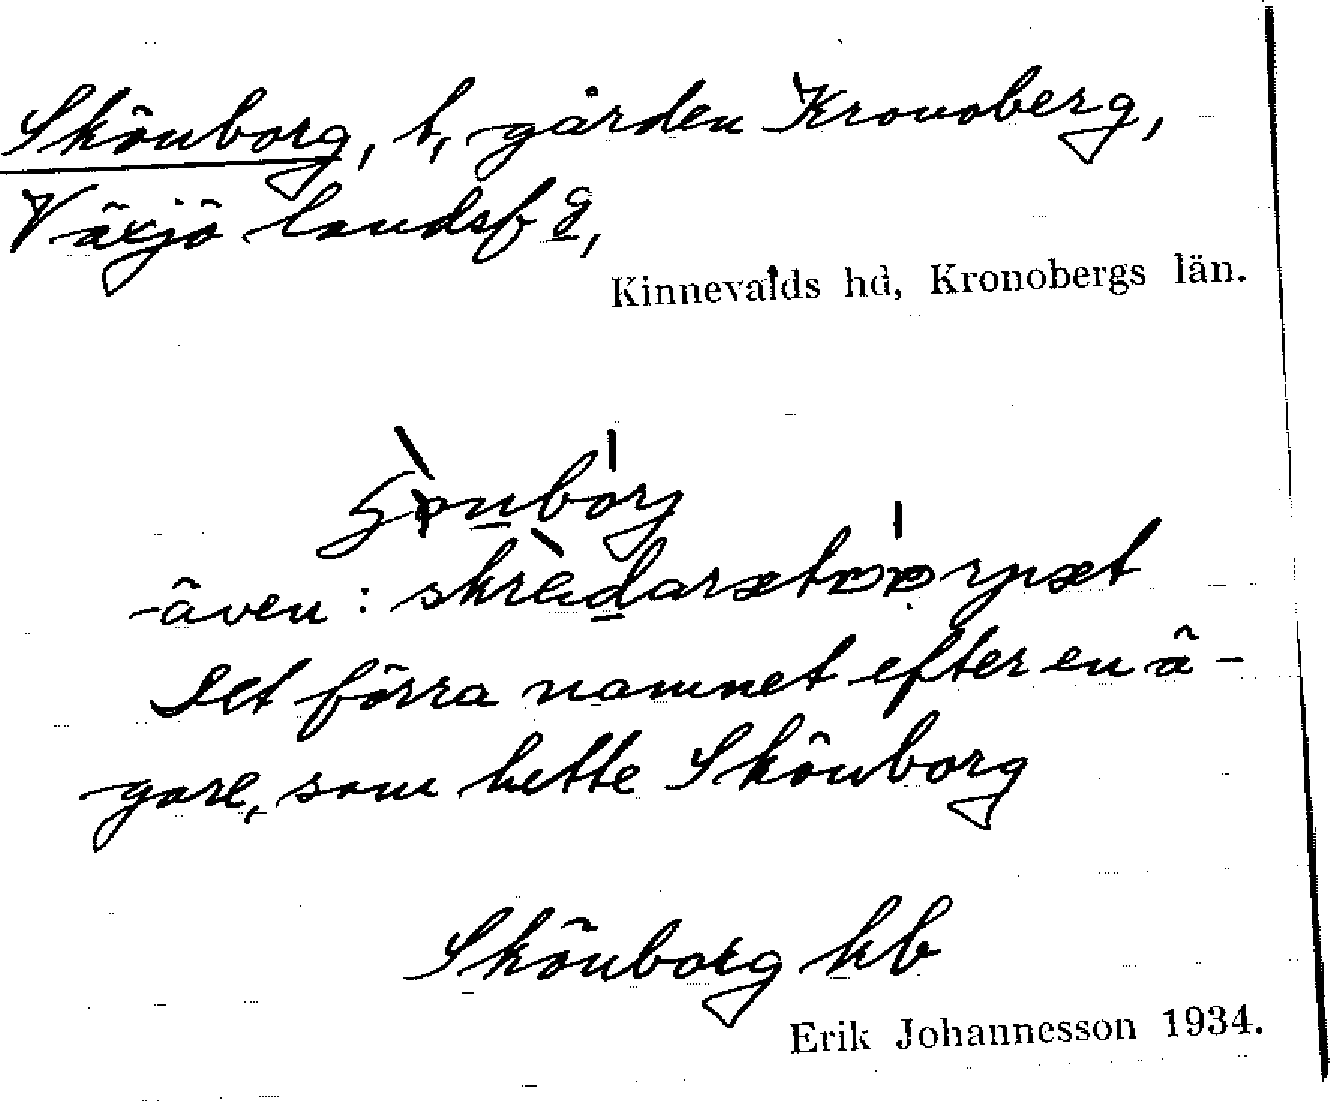 Skönborg, t, gården Kronoberg,
Växjö landsf g,
Kinnevalds hd, Kronobergs län.
även:
Det förra namnet efter en ä-
gare, som hette Skönborg
Skönborg hb
Erik Johannesson 1934.